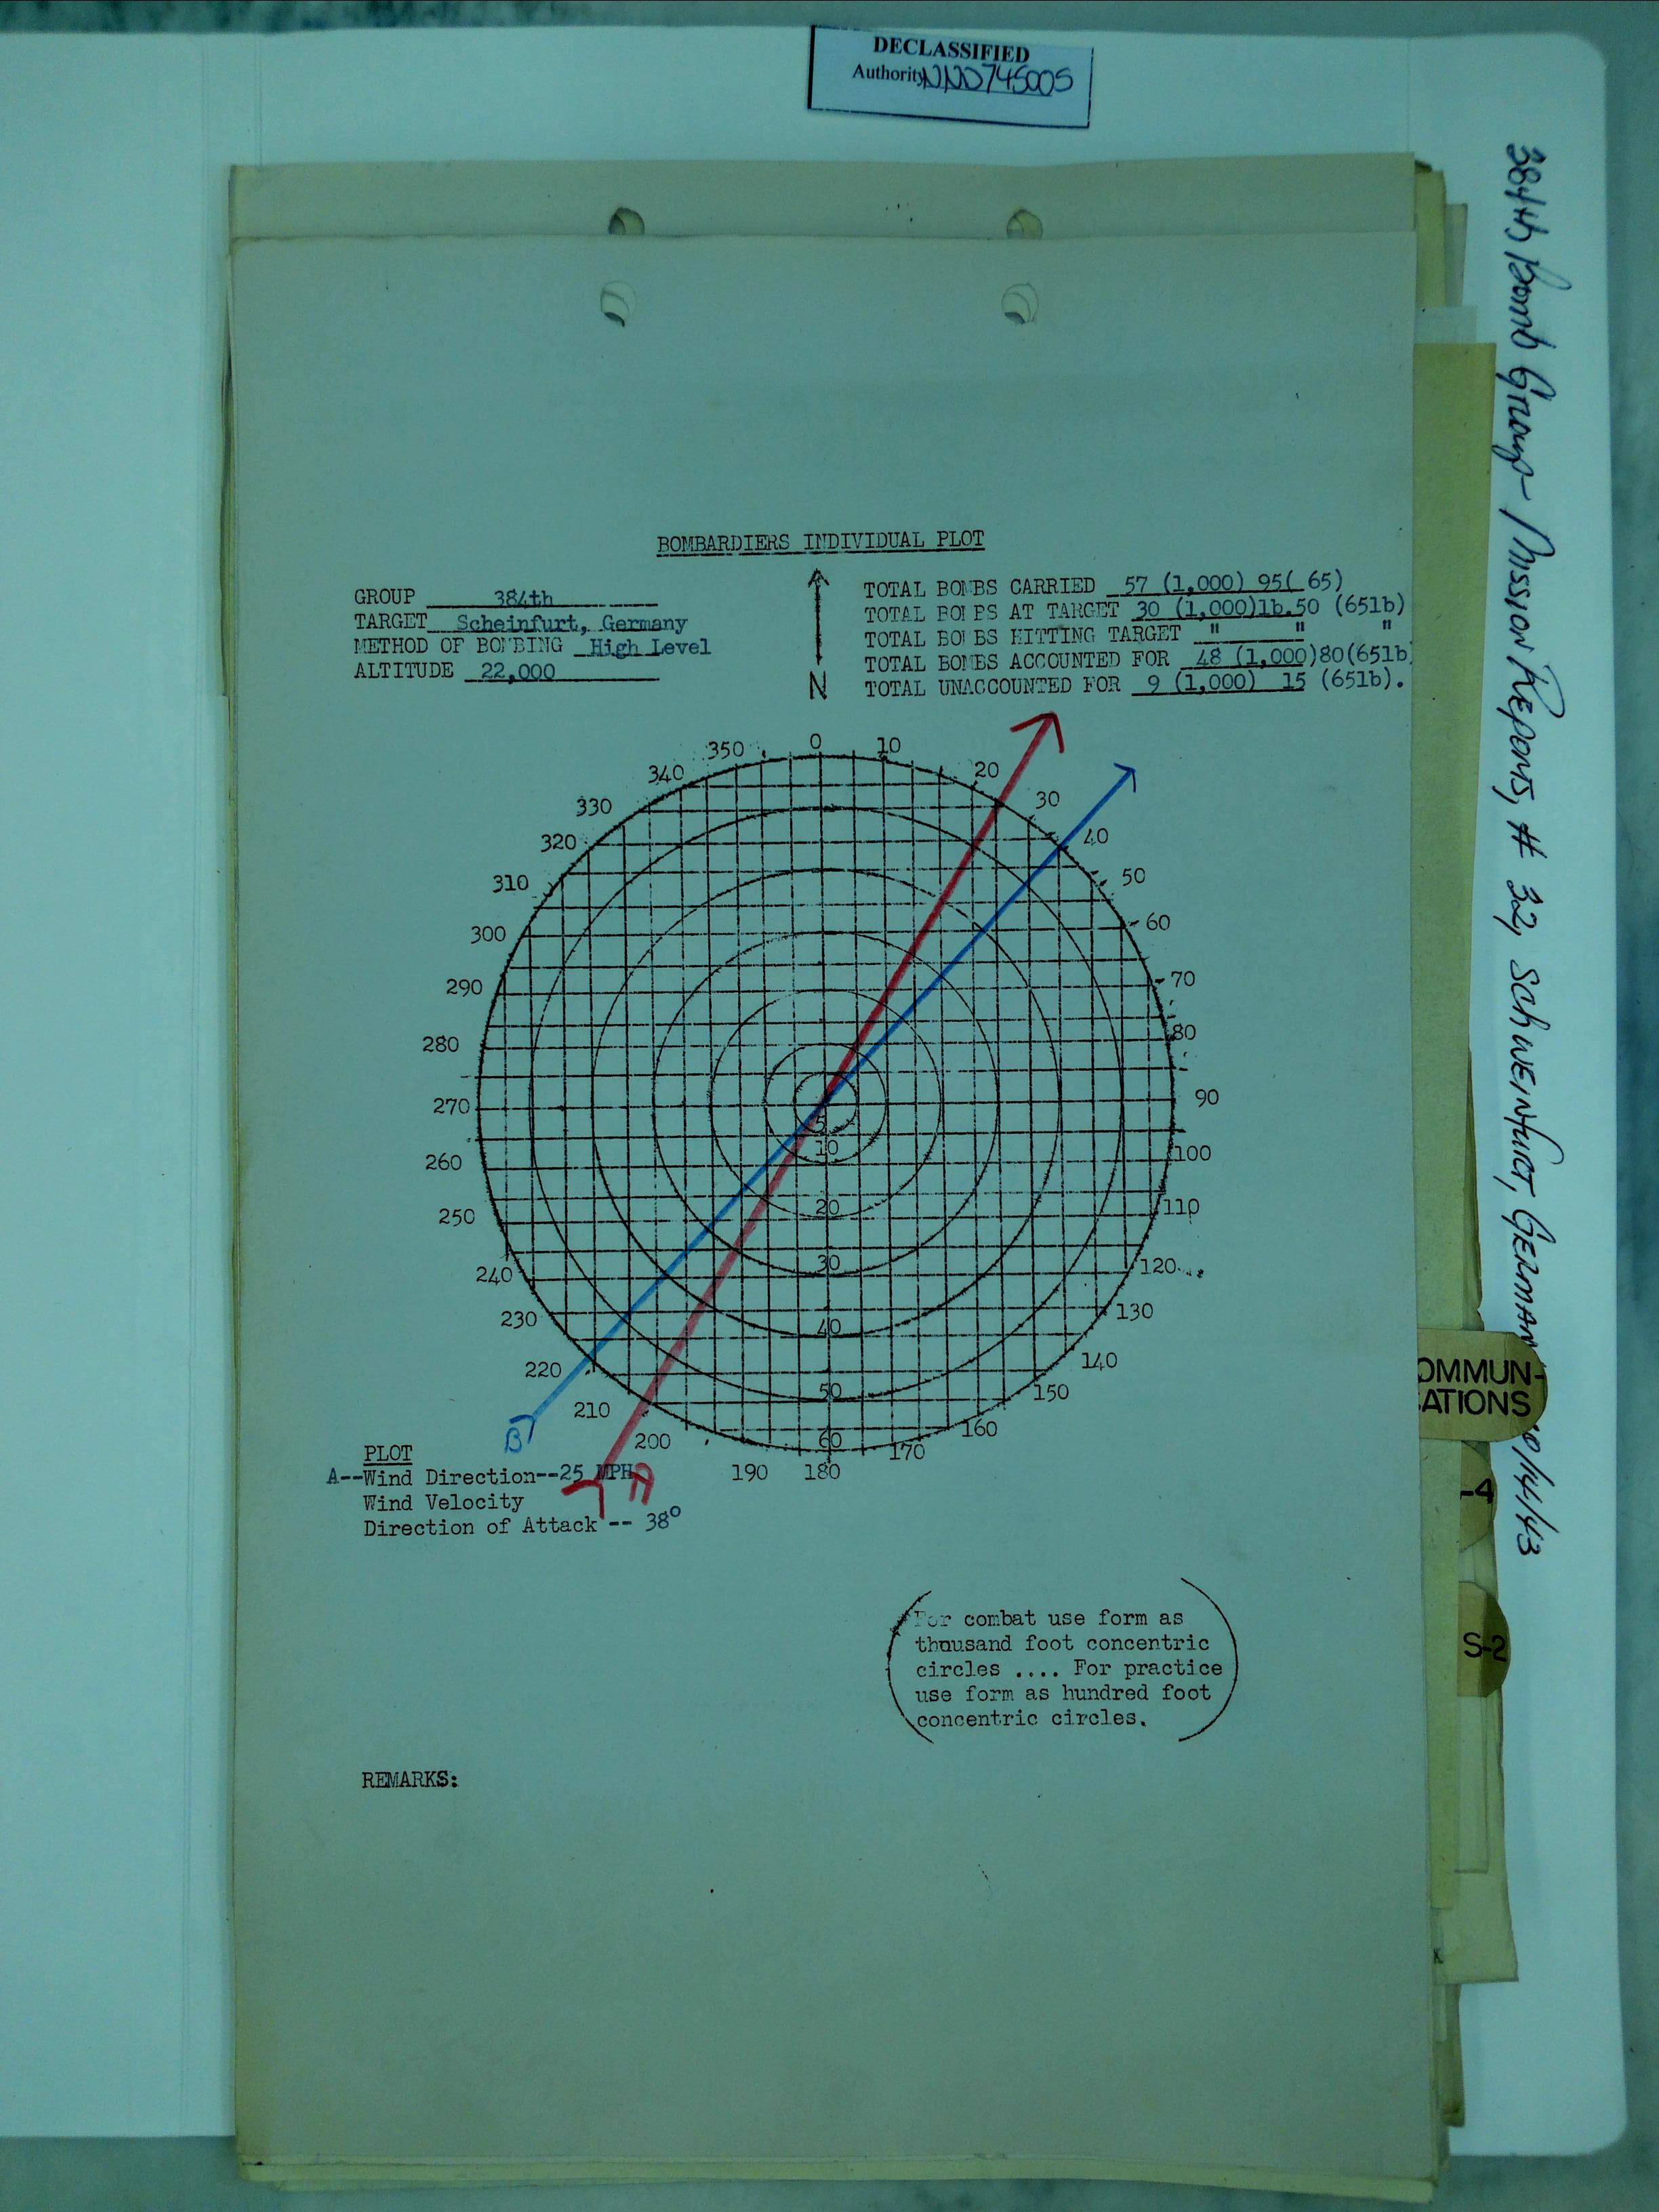 DECLASSIFIED
Authority NND745005
384th Bomb Group - Mission Reports, # 32, Schweinfurt, Germany 10/14/43
BOMBARDIERS INDIVIDUAL PLOT
GROUP 384th
TARGET Scheinfurt, Germany
METHOD OF BOMBING High Level
ALTITUDE 22,000
N
TOTAL BOMBS CARRIED 57 (1,000) 95( 65)
TOTAL BOMBS AT TARGET 30 (1,000)lb.50 (65lb)
TOTAL BOMBS HITTING TARGET " " "
TOTAL BOMBS ACCOUNTED FOR 48 (1,000)80(65lb)
TOTAL UNACCOUNTED FOR 9 (1,000) 15 (65lb).
0
10
20
30
40
50
60
70
80
90
100
110
120
130
140
150
160
170
180
190
200
210
220
230
240
250
260
270
280
290
300
310
320
330
340
350
5
10
20
30
40
50
60
B
A
PLOT
A--Wind Direction--25 MPH
Wind Velocity
Direction of Attack -- 38°
(For combat use form as
thousand foot concentric
circles .... For practice
use form as hundred foot
concentric circles.)
REMARKS:
OMMUN-
ATIONS
-4
S-2
K